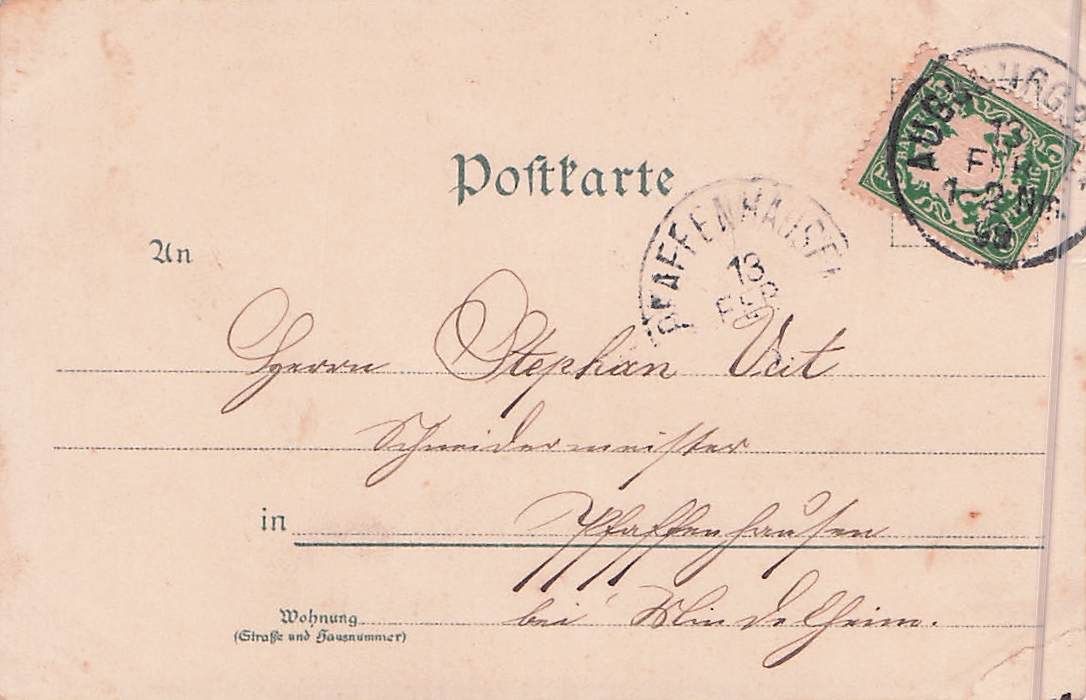 Postkarte
AUGSBURG 2
13
FEB
1-2 Nm.
98
5
PFAFFENHAUSEN
13
FEB
An
Herrn Stephan Veit
Schneidermeister
in Pfaffenhausen
Wohnung bei Mindelheim.
(Straße und Hausnummer)